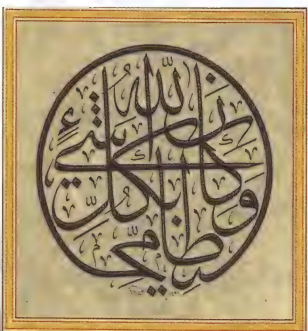 وَكَانَ اللّٰهُ بِكُلِّ شَيْءٍ مُحِيطًا